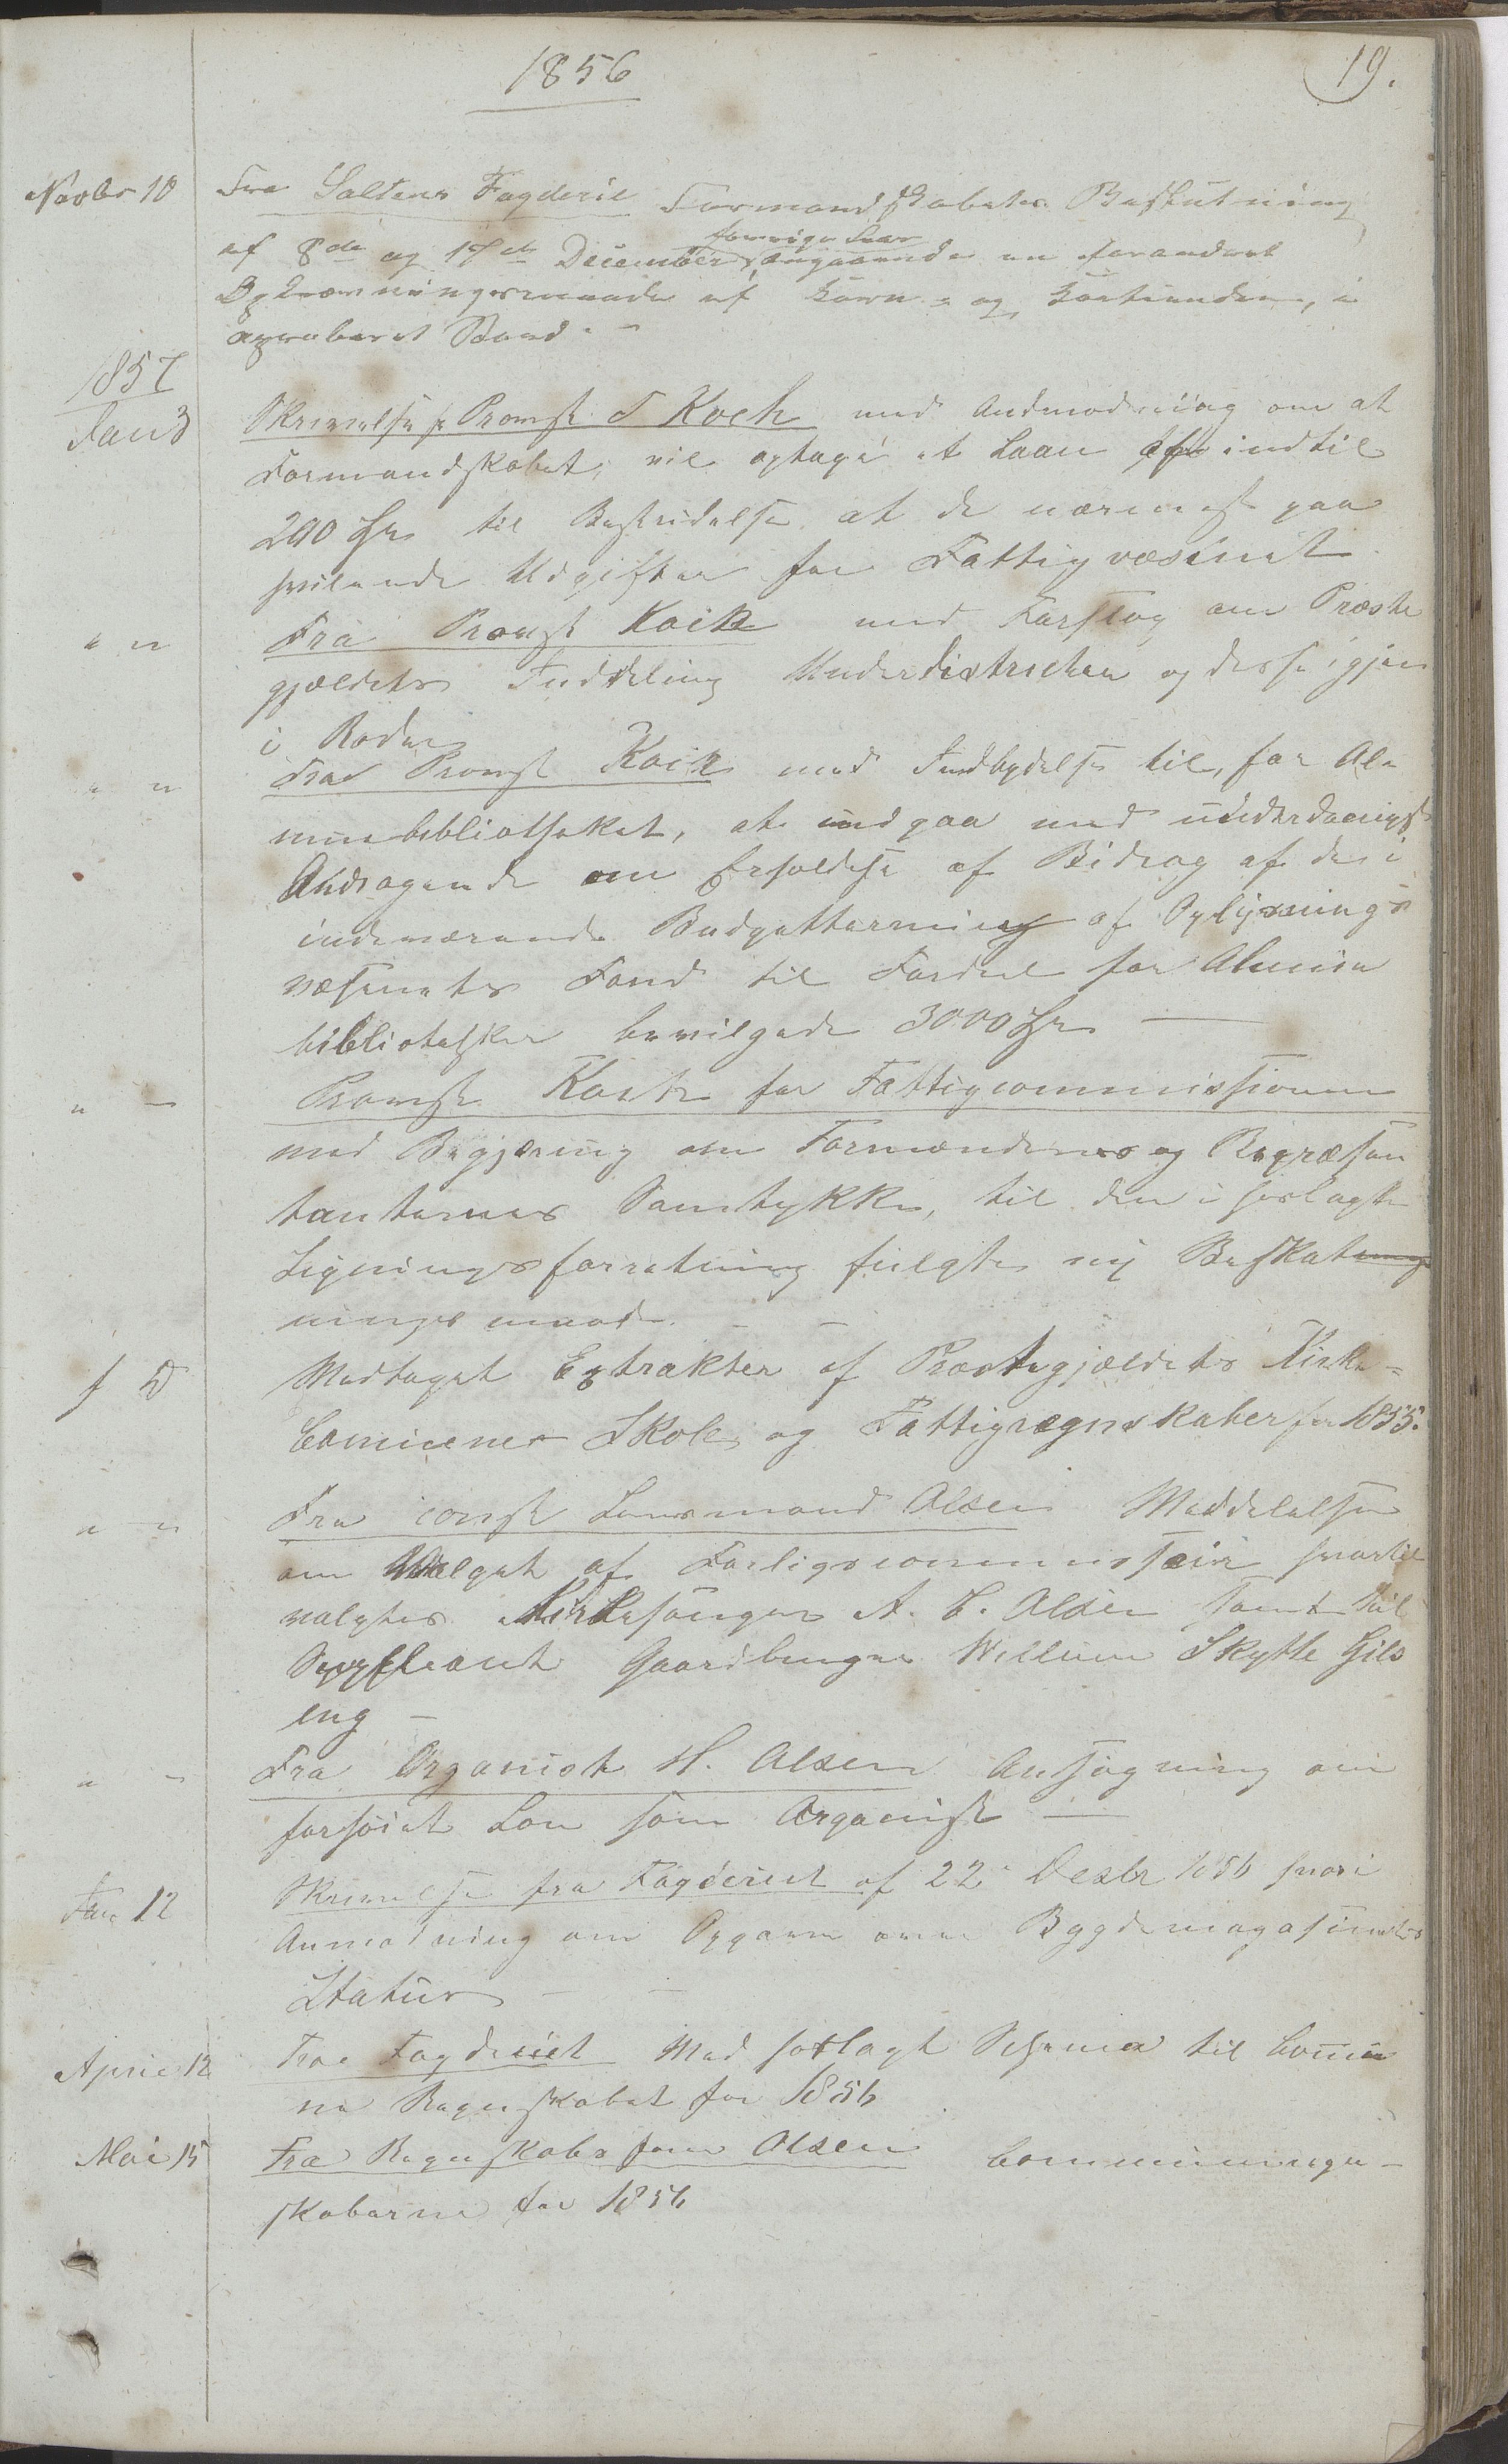 1856
19.
Novbr 10 Fra Saltens Fogderie Formandskabets Beslutning
af 8de og 17de December forrige Aar angaaende en forandret
Opkrævningsmaade af Korn- og Kosttienden, i
approberet Stand. -
1857
Jan 3 Skrivelse fr Provst S Koch med Andmodning om at
Formandskabet, vil optage et Laan indtil
200 Spd til Bestridelse af de nærmest paa
hvilende Udgifter for Fattigvæsenet
" " Fra Provst Koch med Forslag om Præste
gjældets Inddeling Underdistricter og disse igjen
i Roder
" " Fra Provst Koch med Indbydelse til, for Al
muebibliotheket, at indgaa med underdanigst
Andragende om Erholdelse af Bidrag af de i
indeværende Budgettermin af Oplysnings
væsenets Fond til Fordeel for Almue
bibliotheker bevilgede 3000 Spd —
" — Provst Koch for Fattigcommissionen
med Begjæring om Formændenes og Repræsen
tanternes Samtykke, til den i forlagte
Ligningsforretning fulgte ny Beskat
ningsmaade. - -
f D Modtaget Extrakter af Præstegjældets Kirke-
Comunes Skole og Fattigregnskaber for 1855.
" " Fra const Lensmand Olsen Meddelelse
om Valget af Forligscommissair hvortil
valgtes Kirkesanger A. C. Olsen samt til
Suppleant Gaardbruger Willum Skytte Gils
eng —
" - Fra Organist H. Olsen Ansøgning om
forhøiet Løn som Organist —
Jan 12 Skrivelse fra Fogderiet af 22 Decbr 1856 hvori
Anmodning om Opgave over Bygdemagasinets
Status - -
April 12 Fra Fogderiet Med forlagt Schema til Comu
ne Regnskabet for 1856
Mai 15 Fra Regnskabsfører Olsen Communeregn-
skaberne for 1856